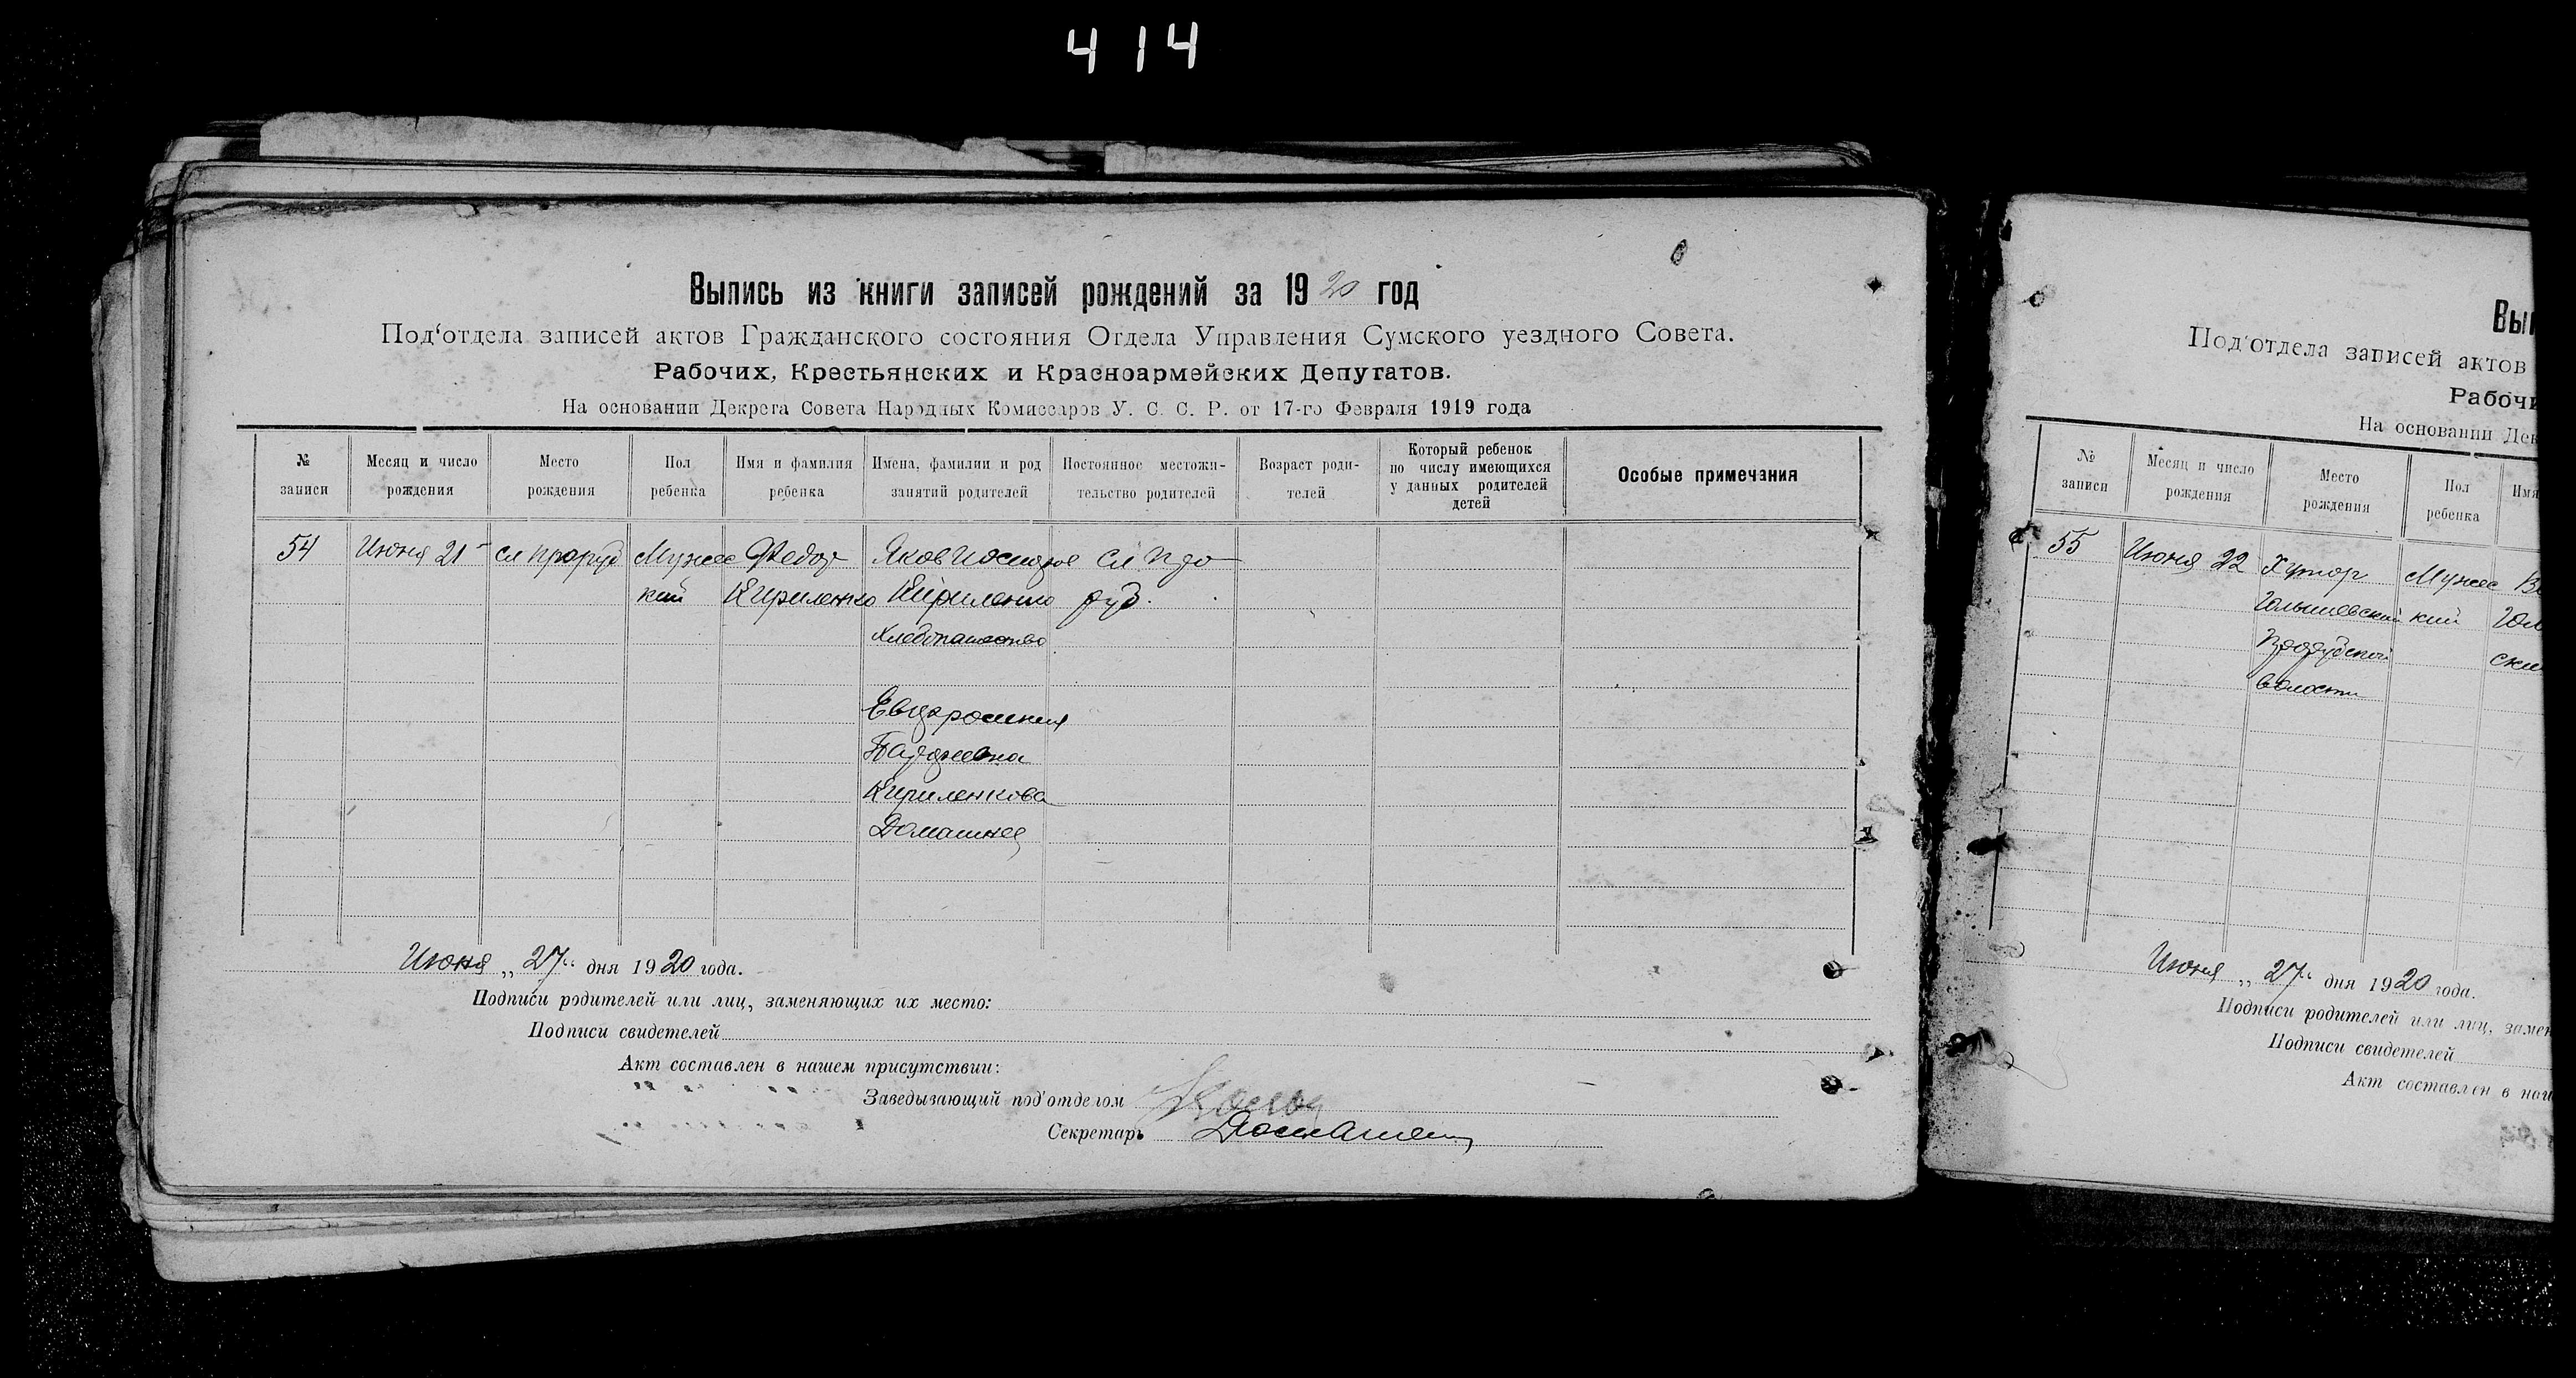 414
Выпись из книги записей рождений за 1920 год
Под‘отдела записей актов Гражданского состояния Отдела Управления Сумского уездного Совета.
Рабочих, Крестьянских и Красноармейских Депутатов.
На основании Декрета Совета Народных Комиссаров У. С. С. Р. от 17-го Февраля 1919 года
№ записи
Месяц и число рождения
Место рождения
Пол ребенка
Имя и фамилия ребенка
Имена, фамилии и род занятий родителей
Постоянное местожи-
тельство родителей
Возраст роди-
телей
Который ребенок
по числу имеющихся
у данных родителей
детей
Особые примечания
54
Июня 21
сл Проруб
Мужес
кий
Федор
Кириленко
Яков
Кириленко
Хлебопашество
Евфросиния
Кириленкова
Домашнее
сл Про
руб.
Июня „27“ дня 1920 года.
Подписи родителей или лиц, заменяющих их место:
Подписи свидетелей
Акт составлен в нашем присутствии:
Заведывающий под‘отделом
Секретарь
Вып
Под‘отдела записей актов
Рабочи
На основании Дек
№ записи
Месяц и число рождения
Место рождения
Пол ребенка
Имя
55
Июня 22
Хутор
Прорубской
волости
Мужес
кий
Июня „27“ дня 1920 года.
Подписи родителей или лиц, замен
Подписи свидетелей
Акт составлен в наш